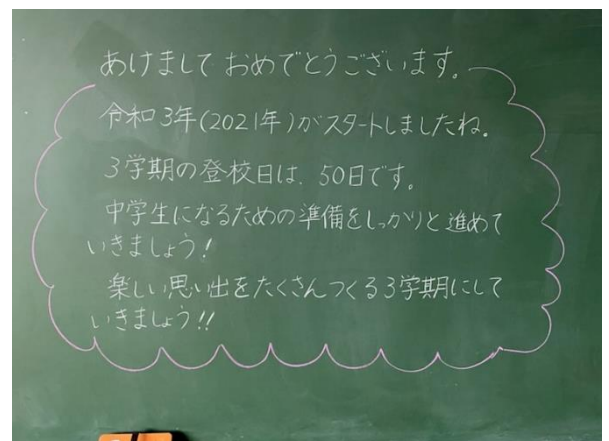 あけまして おめでとうございます。
令和3年(2021年)がスタートしましたね。
3学期の登校日は、50日です。
中学生になるための準備をしっかりと進めて
いきましょう!
楽しい思い出をたくさんつくる3学期にして
いきましょう!!